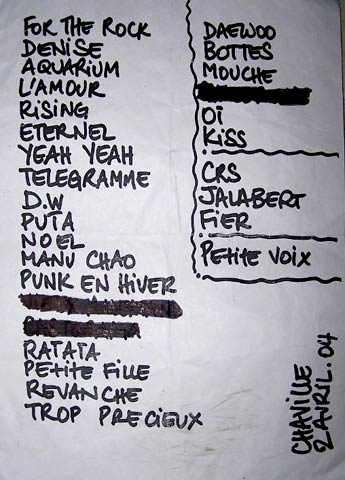 FOR THE ROCK
DENISE
AQUARIUM
L'AMOUR
RISING
ETERNEL
YEAH YEAH
TELEGRAMME
D.W
PUTA
NOEL
MANU CHAO
PUNK EN HIVER
RATATA
PETITE FILLE
REVANCHE
TROP PRECIEUX
DAEWOO
BOTTES
MOUCHE
OÏ
KISS
CRS
JALABERT
FIER
PETITE VOIX
CHAVILLE
2 AVRIL. 04